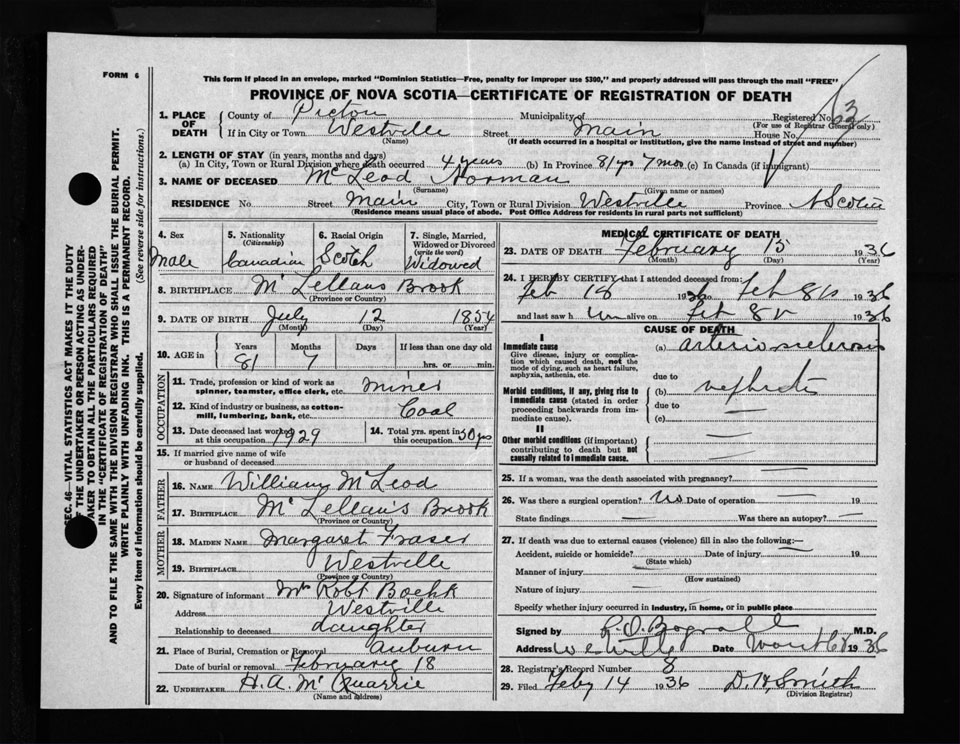 FORM 6
This form if placed in an envelope, marked "Dominion Statistics—Free, penalty for improper use $300," and properly addressed will pass through the mail "FREE"
PROVINCE OF NOVA SCOTIA—CERTIFICATE OF REGISTRATION OF DEATH
1. PLACE OF DEATH
County of Pictou Municipality of Registered No. 63
(For use of Registrar General only)
If in City or Town Westville Street Main House No.
(Name) (If death occurred in a hospital or institution, give the name instead of street and number)
2. LENGTH OF STAY (in years, months and days)
(a) In City, Town or Rural Division where death occurred 4 years (b) In Province 81 yrs 7 mos (c) In Canada (if immigrant)
3. NAME OF DECEASED McLeod Norman
(Surname) (Given name or names)
RESIDENCE No. Street Main City, Town or Rural Division Westville Province N Scotia
(Residence means usual place of abode. Post Office Address for residents in rural parts not sufficient)
4. Sex
Male
5. Nationality
(Citizenship)
Canadian
6. Racial Origin
Scotch
7. Single, Married, Widowed or Divorced
(write the word)
Widowed
8. BIRTHPLACE McLellans Brook
(Province or Country)
9. DATE OF BIRTH July 12 1854
(Month) (Day) (Year)
10. AGE in Years Months Days If less than one day old
81 7 hrs. or min.
OCCUPATION
11. Trade, profession or kind of work as spinner, teamster, office clerk, etc. miner
12. Kind of industry or business, as cotton-mill, lumbering, bank, etc. Coal
13. Date deceased last worked at this occupation 1929
14. Total yrs. spent in this occupation 50 yrs
15. If married give name of wife or husband of deceased
FATHER
16. NAME William McLeod
17. BIRTHPLACE McLellan's Brook
(Province or Country)
MOTHER
18. MAIDEN NAME Margaret Fraser
19. BIRTHPLACE Westville
(Province or Country)
20. Signature of informant Mrs Robt
Address Westville
Relationship to deceased daughter
21. Place of Burial, Cremation or Removal Auburn
Date of burial or removal February 18
22. UNDERTAKER H. A. McQuarrie
(Name and address)
MEDICAL CERTIFICATE OF DEATH
23. DATE OF DEATH February 15 1936
(Month) (Day) (Year)
24. I HEREBY CERTIFY that I attended deceased from
Feb 1936 to Feb 1936
and last saw h im alive on Feb 1936
CAUSE OF DEATH
I
Immediate cause
Give disease, injury or complication which caused death, not the mode of dying, such as heart failure, asphyxia, asthenia, etc.
(a) arteriosclerosis
due to
Morbid conditions, if any, giving rise to immediate cause (stated in order proceeding backwards from immediate cause).
(b)
due to
(c)
II
Other morbid conditions (if important) contributing to death but not causally related to immediate cause.
25. If a woman, was the death associated with pregnancy?
26. Was there a surgical operation? no Date of operation 19
State findings Was there an autopsy?
27. If death was due to external causes (violence) fill in also the following:—
Accident, suicide or homicide? Date of injury 19
(State which)
Manner of injury
(How sustained)
Nature of injury
Specify whether injury occurred in industry, in home, or in public place
Signed by M.D.
Address Westville Date 1936
28. Registrar's Record Number 8
29. Filed Feby 14 1936 D. H. Smith
(Division Registrar)
SEC. 46—VITAL STATISTICS ACT MAKES IT THE DUTY
OF THE UNDERTAKER OR PERSON ACTING AS UNDER-
TAKER TO OBTAIN ALL THE PARTICULARS REQUIRED
IN THE "CERTIFICATE OF REGISTRATION OF DEATH"
AND TO FILE THE SAME WITH THE DIVISION REGISTRAR WHO SHALL ISSUE THE BURIAL PERMIT.
WRITE PLAINLY WITH UNFADING INK. THIS IS A PERMANENT RECORD.
Every item of information should be carefully supplied. (See reverse side for instructions.)